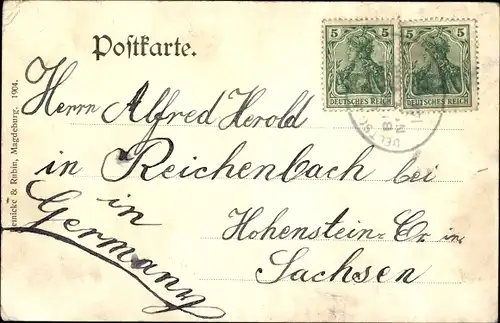 Postkarte.
5 5
5 5
DEUTSCHES REICH
DEUTSCHES REICH
Herrn Alfred Herold
in Reichenbach bei
Hohenstein-Er. in
Sachsen
in
Germany
& Rubin, Magdeburg. 1904.